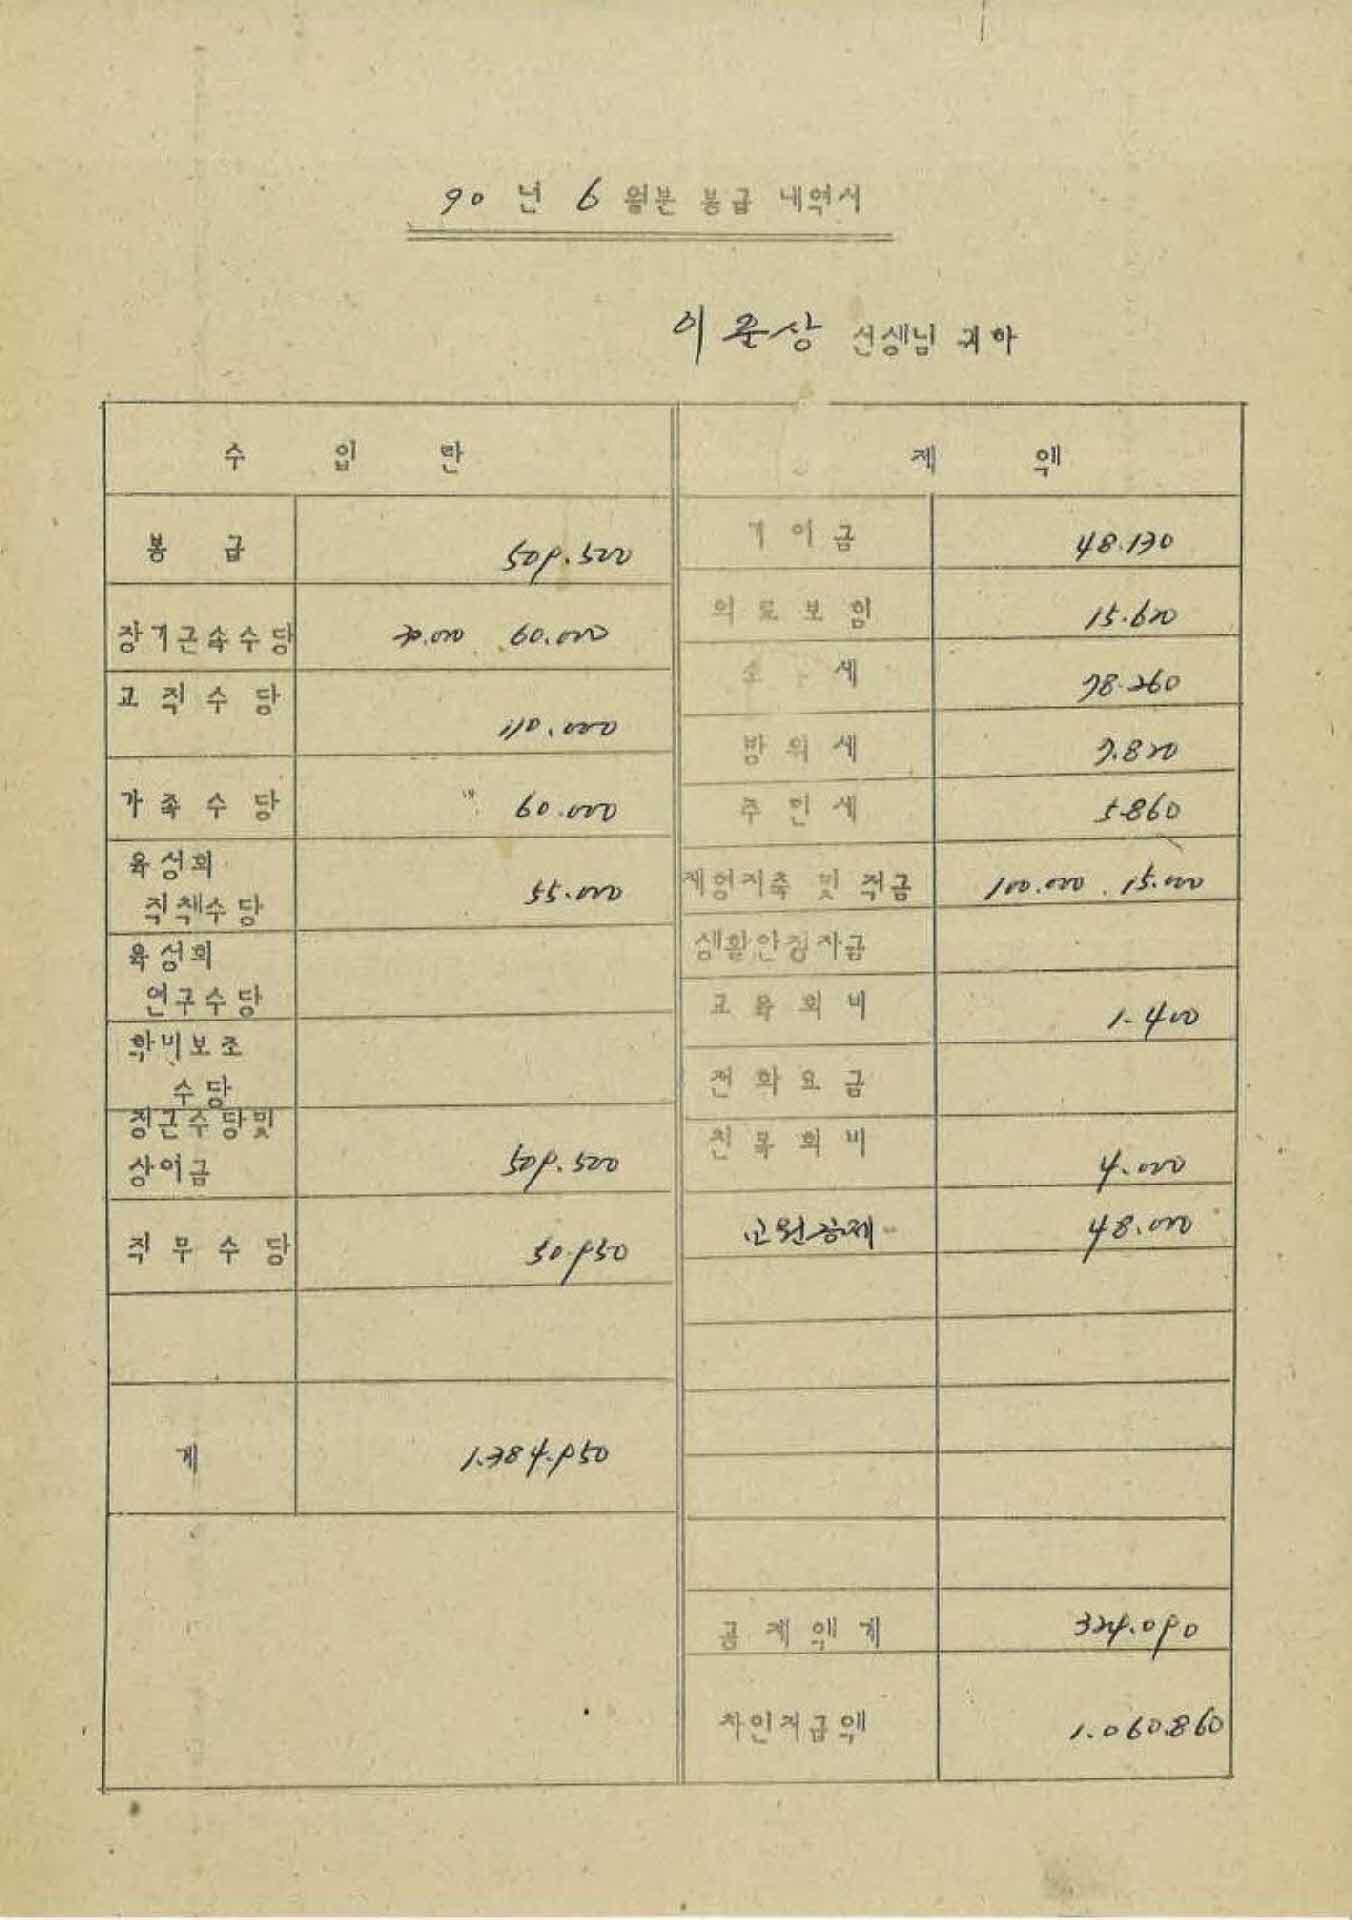 90 년 6 월분 봉급 내역서
이준상 선생님 귀하
수 입 란
제 액
봉 급 509.500
기 여 금 48.130
장기근속수당 30.000 60.000
의 료 보 험 15.620
교 직 수 당 110.000
소 세 78.260
방 위 세 7.820
가 족 수 당 60.000
주 민 세 5.860
육성회
직책수당 55.000
재형저축 및 적금 100.000 . 15.000
육성회
연구수당
생활안정자금
교 육 회 비 1.400
학비보조
수당
전 화 요 금
정근수당및
상여금 509.500
친 목 회 비 4.000
직 무 수 당 50.950
교원공제 48.000
계 1.384.950
공 제 액 계 324.090
차인지급액 1.060.860